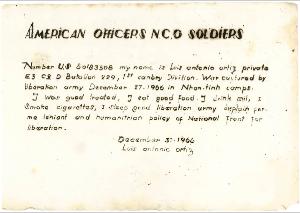 AMERICAN OFFICERS N.C.O SOLDIERS
Number US 50183308 my name is Luis antonio ortiz private
E3 C8 D Batalion 229, 1st canbry Division. War cultured by
liberation army December 27-1966 in Nhon-tinh camps.
I was good treated, I eat good food. I drink mil, I
Smoke cigarettes, I sleep good liberation army explain for
me lenient and humanitrian policy of National Front for
liberation.
December 31-1966
Luis antonio ortiz